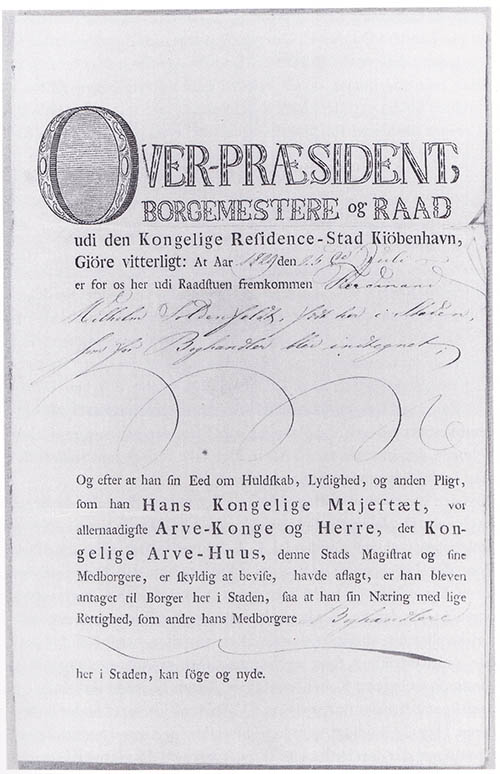 OVER-PRÆSIDENT,
BORGEMESTERE og RAAD
udi den Kongelige Reſidence-Stad Kiöbenhavn,
Giöre vitterligt: At Aar 1819 den Juli
er for os her udi Raadſtuen fremkommen Ferdinand
Wilhelm Seldenfeldt, född her i Staden,
som for Byhandler blev indtegnet,
Og efter at han ſin Eed om Huldſkab, Lydighed, og anden Pligt,
ſom han Hans Kongelige Majeſtæt, vor
allernaadigſte Arve-Konge og Herre, det Kon-
gelige Arve-Huus, denne Stads Magiſtrat og ſine
Medborgere, er ſkyldig at beviſe, havde aflagt, er han bleven
antaget til Borger her i Staden, ſaa at han ſin Næring med lige
Rettighed, ſom andre hans Medborgere Byhandlere
her i Staden, kan ſöge og nyde.